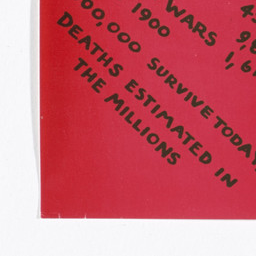 WARS
1900
00,000 SURVIVE TODAY
DEATHS ESTIMATED IN
THE MILLIONS